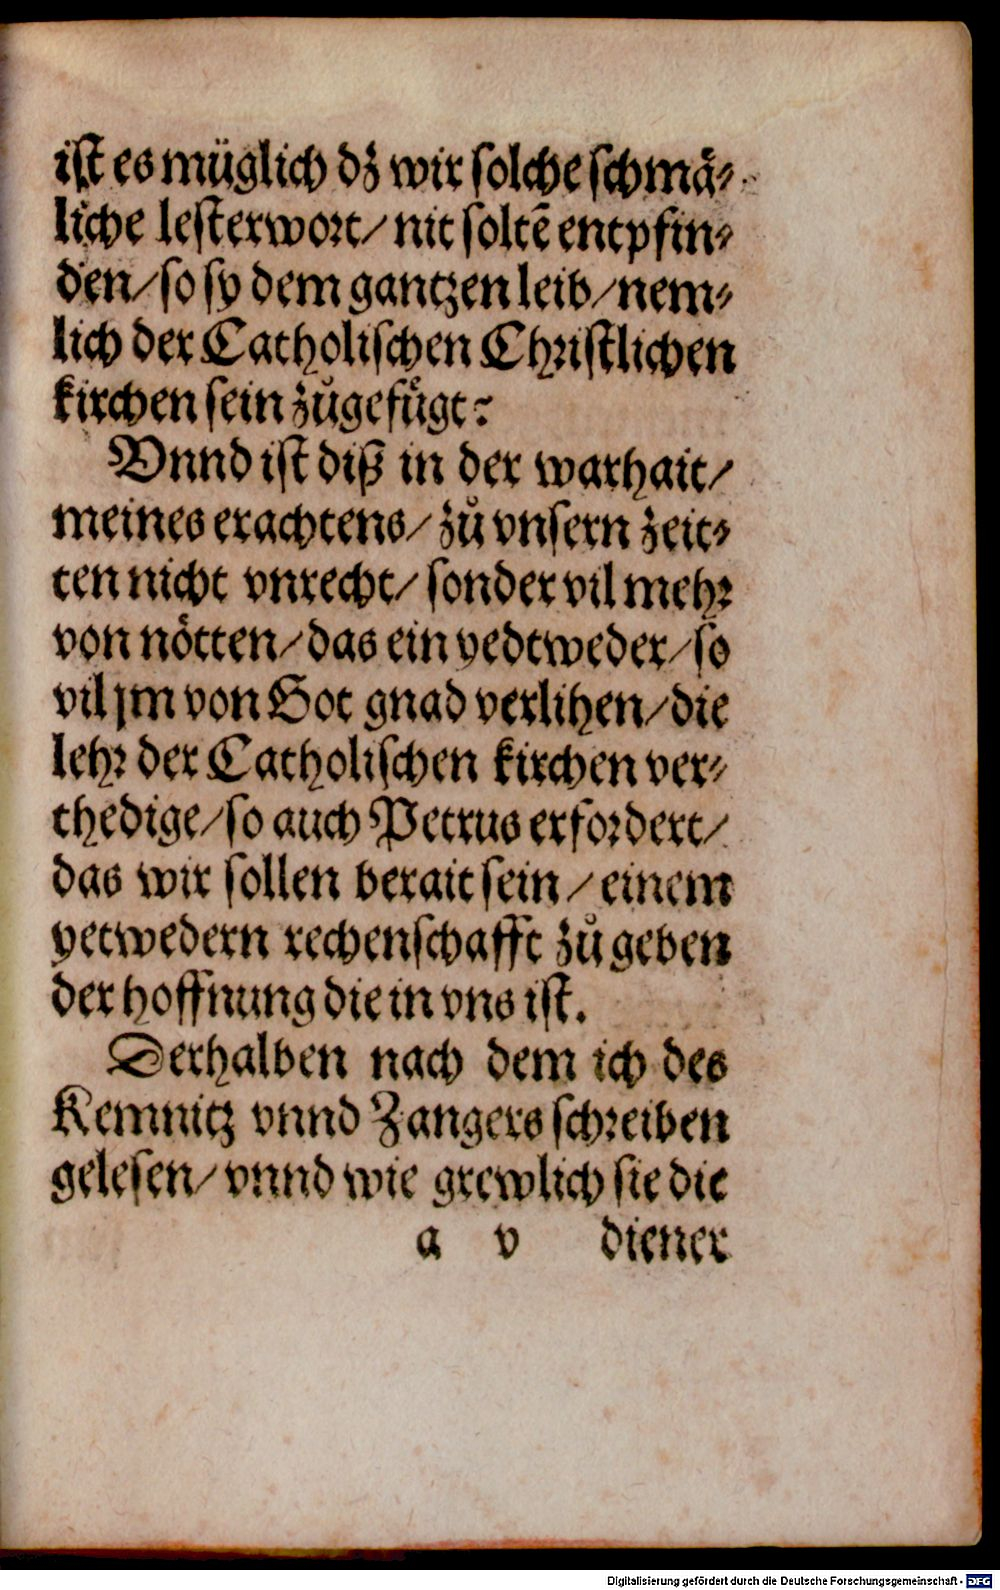 ist es müglich dz wir solche schmaͤ⸗
liche lesterwort/ nit soltẽ entpfin⸗
den/ so sy dem gantzen leib/ nem⸗
lich der Catholischen Christlichen
kirchen sein zůgefuͤgt?
Vnnd ist diß in der warhait/
meines erachtens/ zů vnsern zeit⸗
ten nicht vnrecht/ sonder vil mehr
von noͤtten/ das ein yedtweder/ so
vil jm von Got gnad verlihen/ die
lehr der Catholischen kirchen ver⸗
thedige/ so auch Petrus erfordert/
das wir sollen berait sein/ einem
yetwedern rechenschafft zů geben
der hoffnung die in vns ist.
Derhalben nach dem ich des
Kemnitz vnnd Zangers schreiben
gelesen/ vnnd wie grewlich sie die
a v diener
Digitalisierung gefördert durch die Deutsche Forschungsgemeinschaft - DFG